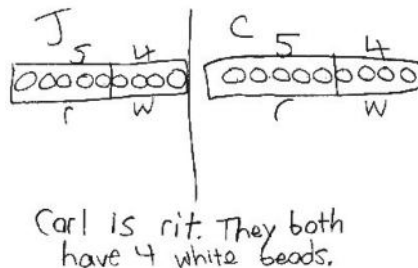 J C
5 4 5 4
r w r w
Carl is rit. They both
have 4 white beads.